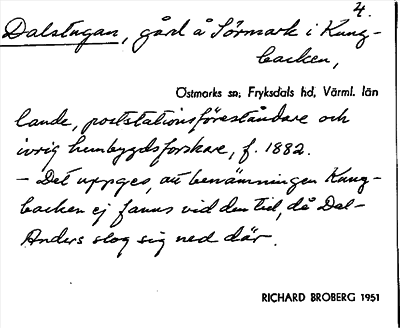 4.
Dalstugan, gård å Sörmark i Kung-
backen,
Östmarks sn; Fryksdals hd, Värml. län
lande, poststationsföreståndare och
ivrig hembygdsforskare, f. 1882.
– Det uppges, att benämningen Kung-
backen ej fanns vid den tid, då Dal-
Anders slog sig ned där.
RICHARD BROBERG 1951